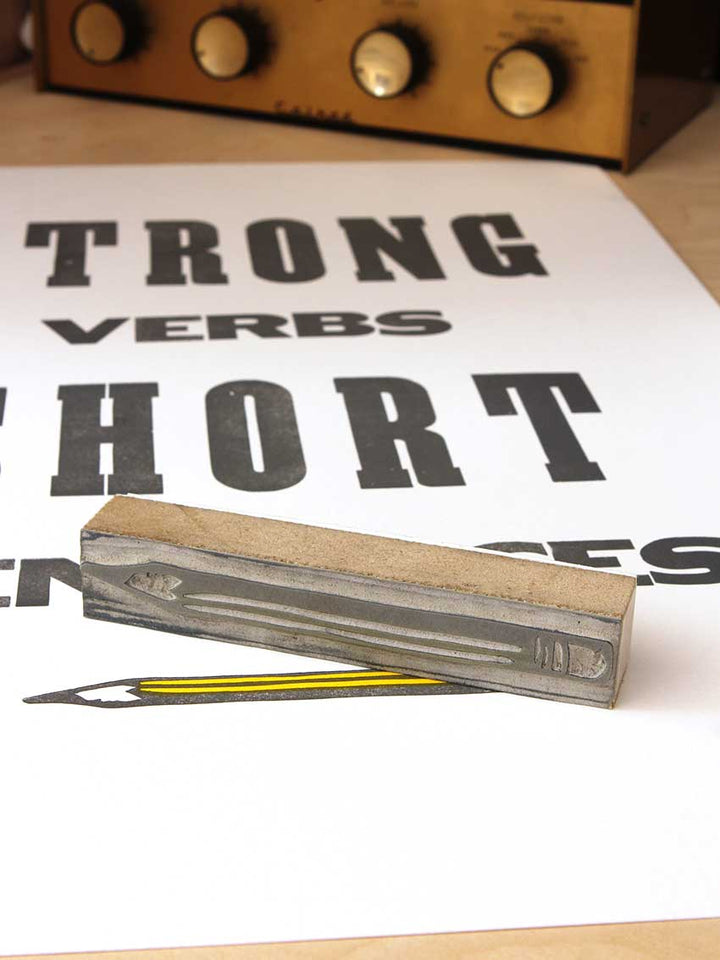 TRONG
VERBS
SHORT
EN CES